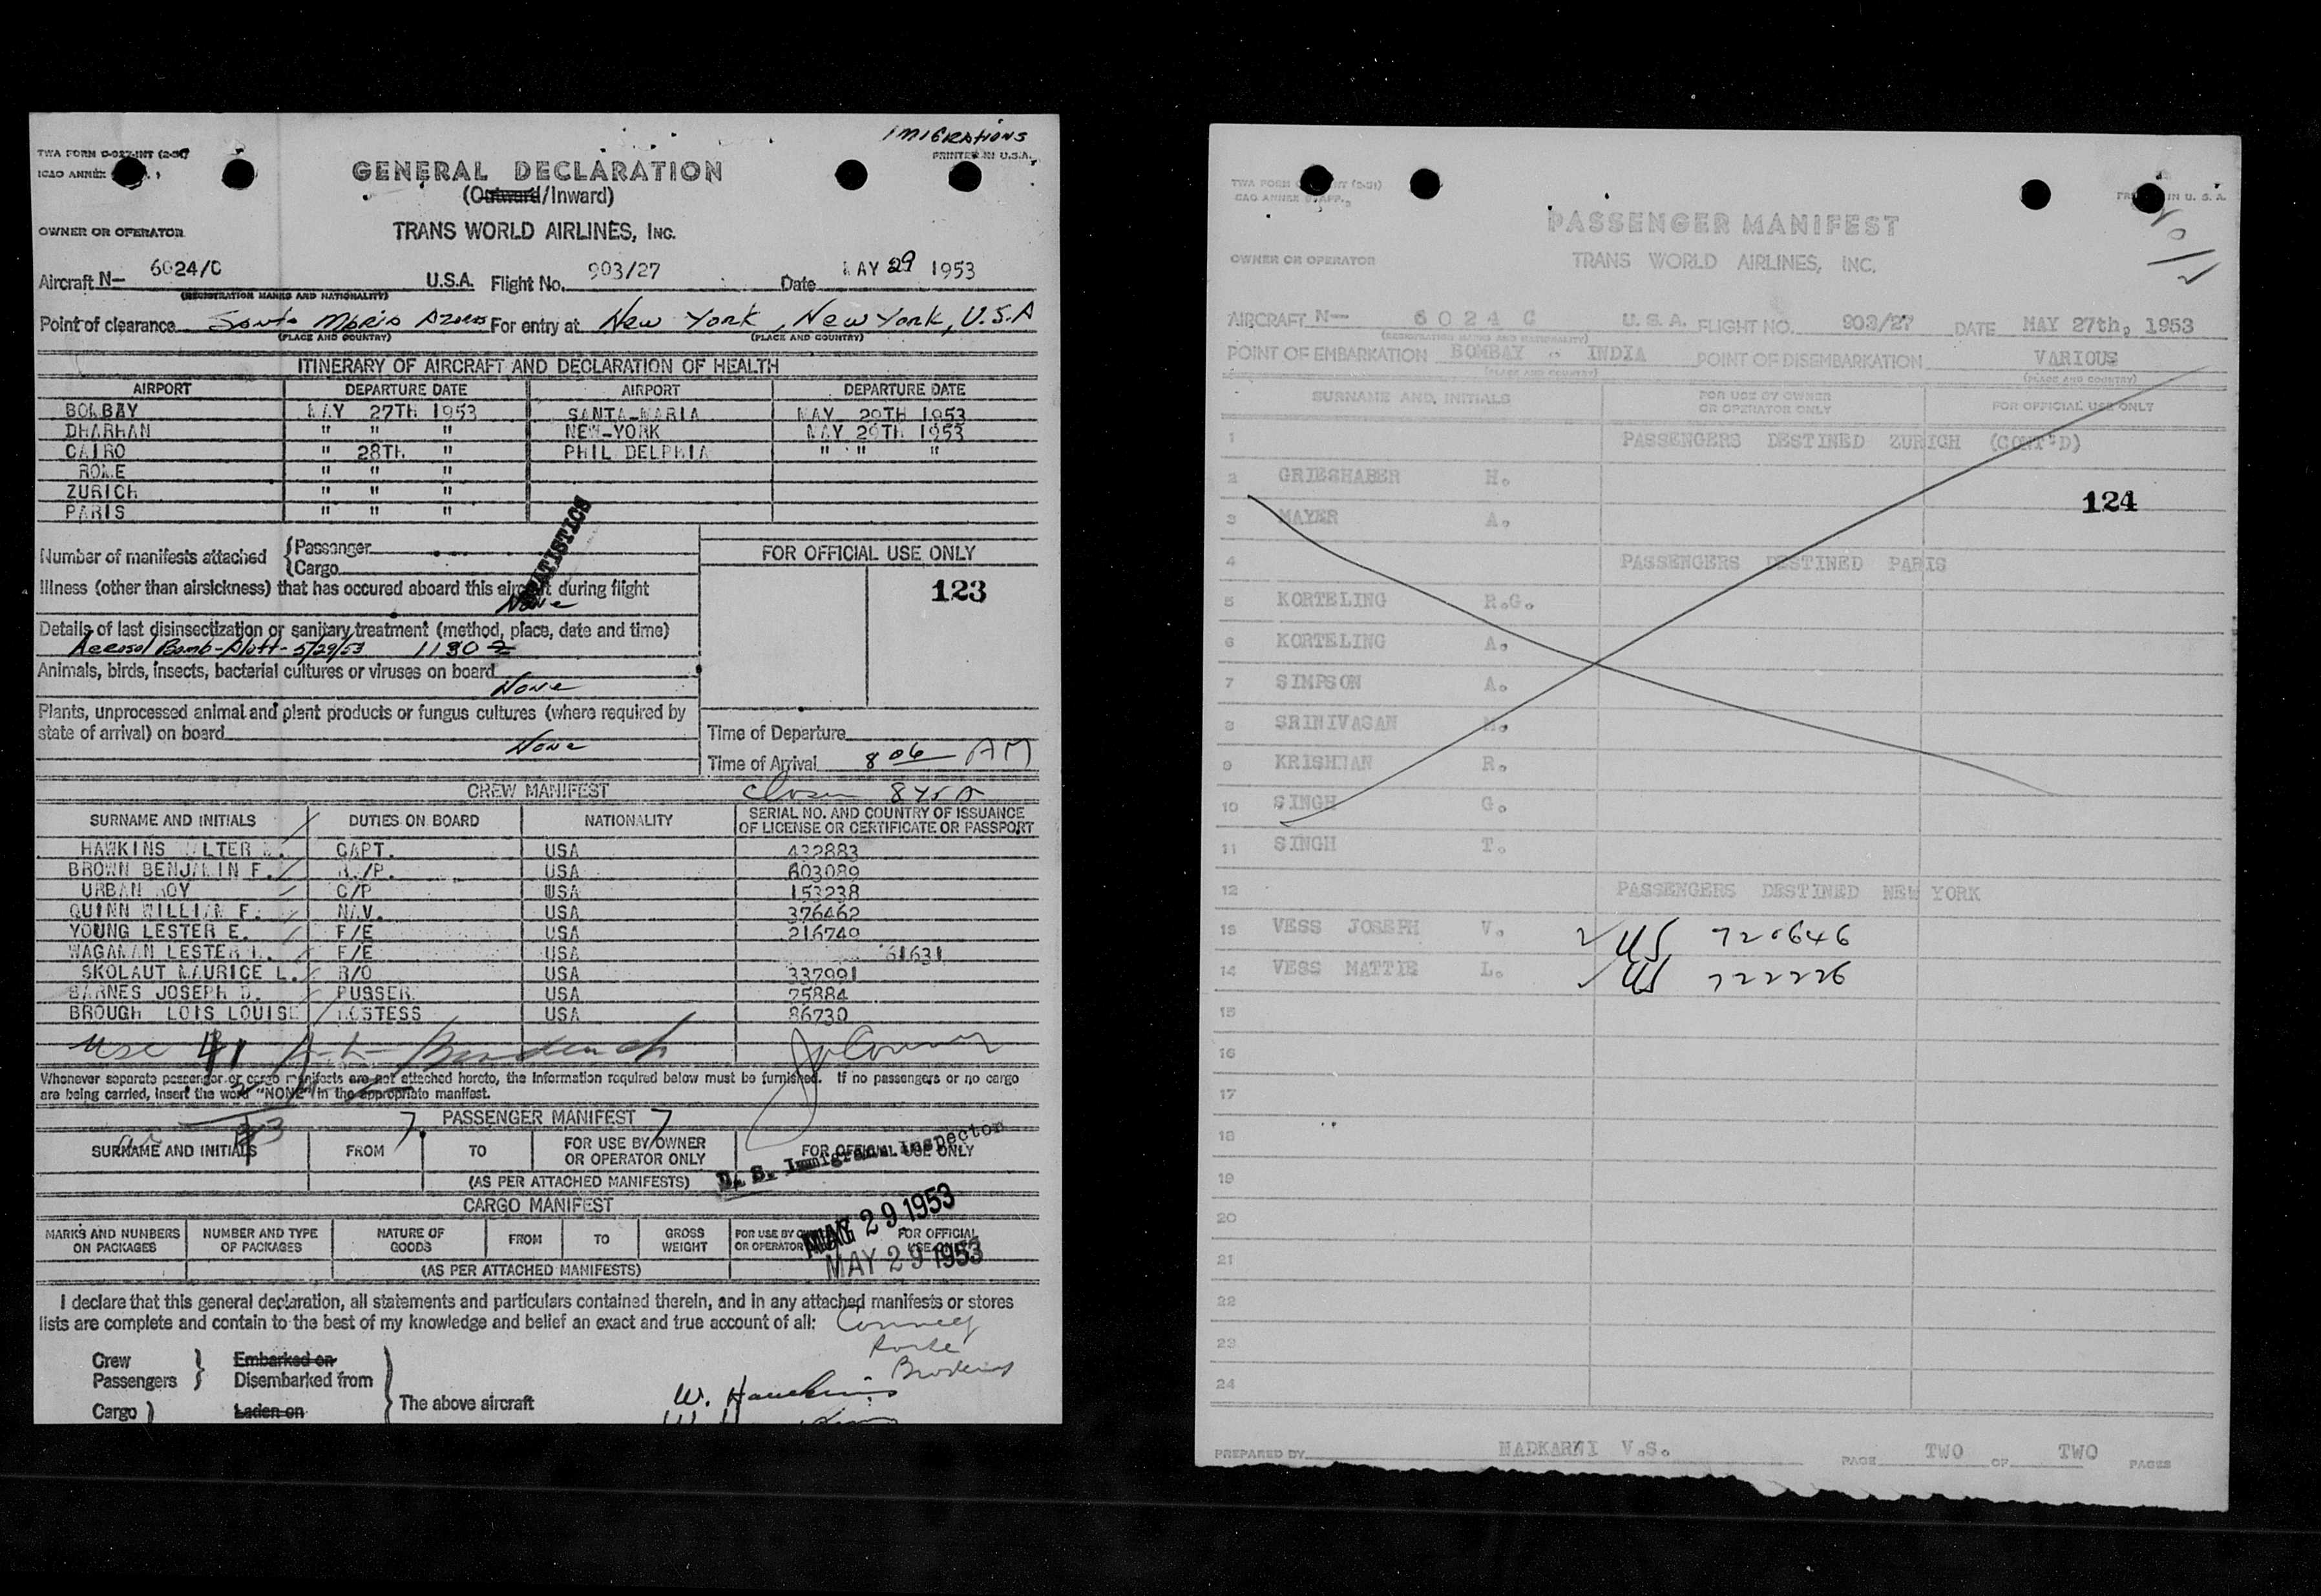 IMIGRATIONS
TWA FORM
PRINTED IN U.S.A.
ICAO ANNEX
GENERAL DECLARATION
(Outward/Inward)
OWNER OR OPERATOR
TRANS WORLD AIRLINES, INC.
Aircraft N— 6024/C U.S.A. Flight No. 903/27 Date MAY 29 1953
(REGISTRATION MARKS AND NATIONALITY)
Point of clearance Santa Maria Azores For entry at New York, New York, U.S.A
(PLACE AND COUNTRY) (PLACE AND COUNTRY)
ITINERARY OF AIRCRAFT AND DECLARATION OF HEALTH
AIRPORT DEPARTURE DATE AIRPORT DEPARTURE DATE
BOMBAY MAY 27TH 1953 SANTA-MARIA MAY 29TH 1953
DHARHAN " " " NEW-YORK MAY 29TH 1953
CAIRO " 28TH " PHIL DELPHIA " " "
ROME " " "
ZURICH " " "
PARIS " " "
STATISTICS
Number of manifests attached { Passenger
Cargo
FOR OFFICIAL USE ONLY
123
Illness (other than airsickness) that has occured aboard this aircraft during flight
None
Details of last disinsectization or sanitary treatment (method, place, date and time)
Aerosol Bomb- 5/29/53 1130 Z
Animals, birds, insects, bacterial cultures or viruses on board
None
Plants, unprocessed animal and plant products or fungus cultures (where required by
state of arrival) on board
None
Time of Departure
Time of Arrival 8 06 AM
CREW MANIFEST
845A
SURNAME AND INITIALS DUTIES ON BOARD NATIONALITY SERIAL NO. AND COUNTRY OF ISSUANCE
OF LICENSE OR CERTIFICATE OR PASSPORT
HAWKINS LTER CAPT. USA 432883
BROWN BENJAMIN F. R./P. USA 603089
URBAN ROY C/P USA 153238
QUINN WILLIAM F. NAV. USA 376462
YOUNG LESTER E. F/E USA 216749
WAGAMAN LESTER F/E USA 61631
SKOLAUT MAURICE L. R/O USA 337991
BARNES JOSEPH D. PUSSER USA 75884
BROUGH LOIS LOUISE HOSTESS USA 86730
Usc 41
Whenever separate passenger or cargo manifests are not attached hereto, the information required below must be furnished. If no passengers or no cargo
are being carried, insert the word "NONE" in the appropriate manifest.
PASSENGER MANIFEST
SURNAME AND INITIALS FROM TO FOR USE BY OWNER
OR OPERATOR ONLY FOR OFFICIAL USE ONLY
U. S. Immigrant Inspector
(AS PER ATTACHED MANIFESTS)
CARGO MANIFEST
MARKS AND NUMBERS
ON PACKAGES NUMBER AND TYPE
OF PACKAGES NATURE OF
GOODS FROM TO GROSS
WEIGHT FOR USE BY
OR OPERATOR FOR OFFICIAL
USE ONLY
MAY 29 1953
MAY 29 1953
(AS PER ATTACHED MANIFESTS)
I declare that this general declaration, all statements and particulars contained therein, and in any attached manifests or stores
lists are complete and contain to the best of my knowledge and belief an exact and true account of all:
Crew
Passengers } Embarked on
Disembarked from
Cargo } Laden on
The above aircraft
W. Hawkins
TWA FORM INT (2-51)
CAO ANNEX 9, APP.
IN U. S. A.
PASSENGER MANIFEST
OWNER OR OPERATOR TRANS WORLD AIRLINES, INC.
AIRCRAFT N— 6024 C U.S.A. FLIGHT NO. 903/27 DATE MAY 27th, 1953
(REGISTRATION MARKS AND NATIONALITY)
POINT OF EMBARKATION BOMBAY - INDIA POINT OF DISEMBARKATION VARIOUS
(PLACE AND COUNTRY) (PLACE AND COUNTRY)
SURNAME AND INITIALS FOR USE BY OWNER
OR OPERATOR ONLY FOR OFFICIAL USE ONLY
1 PASSENGERS DESTINED ZURICH (CONT'D)
2 GRIESHABER H.
124
3 MAYER A.
4 PASSENGERS DESTINED PARIS
5 KORTELING R.G.
6 KORTELING A.
7 SIMPSON A.
8 SRINIVASAN M.
9 KRISHNAN R.
10 SINGH G.
11 SINGH T.
12 PASSENGERS DESTINED NEW YORK
13 VESS JOSEPH V. 720646
14 VESS MATTIE L. 722226
15
16
17
18
19
20
21
22
23
24
PREPARED BY NADKARNI V.S. PAGE TWO OF TWO PAGES